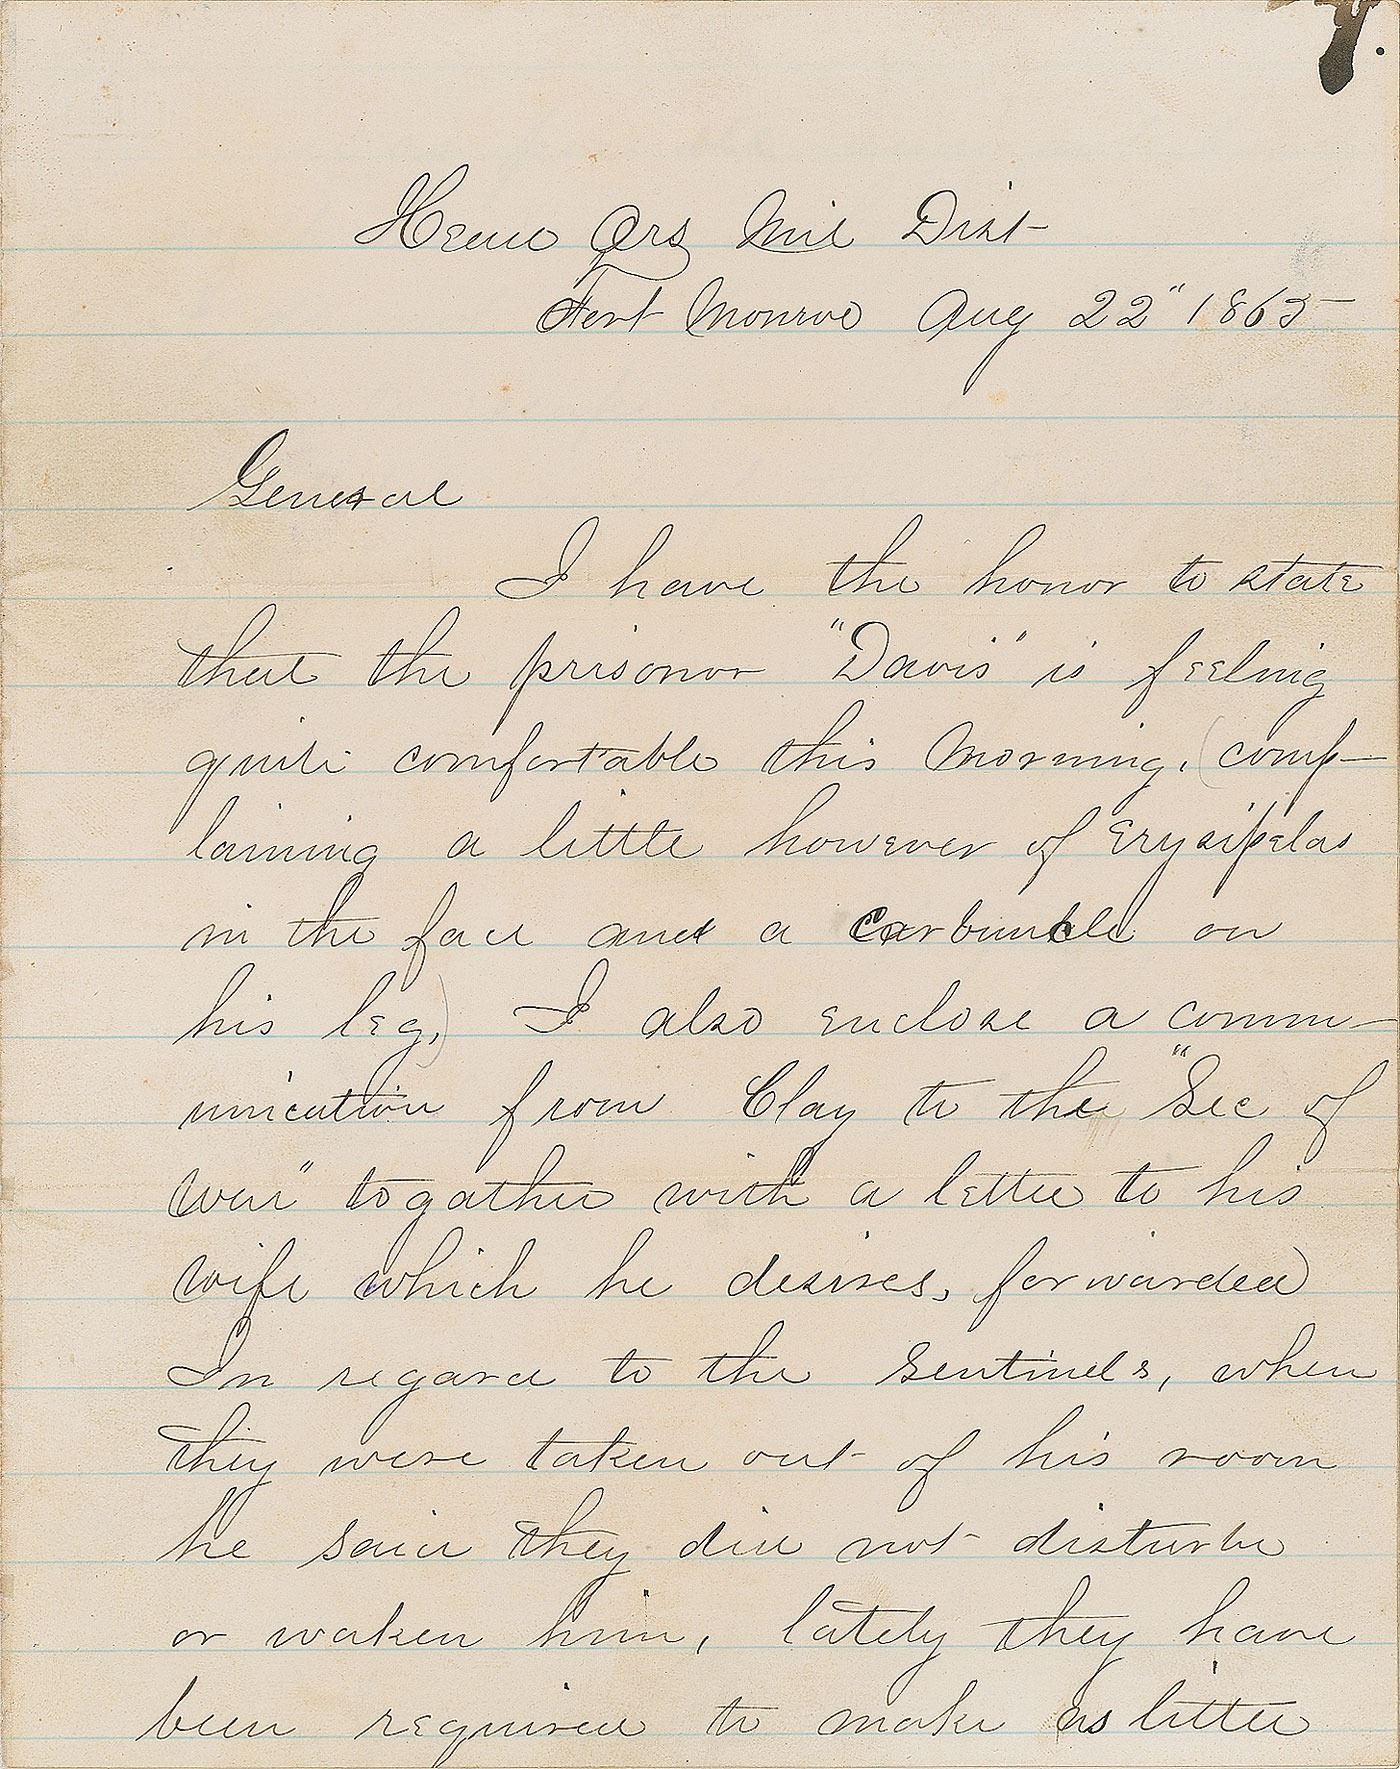 Head Qrs Mil Dist
Fort Monroe Aug 22" 1865
General
I have the honor to state
that the prisoner "Davis" is feeling
quite comfortable this Morning, (comp-
laining a little however of Erysipelas
in the face and a Carbuncle on
his leg,) I also enclose a comm-
unication from Clay to the "Sec of
War" together with a letter to his
wife which he desires, forwarded
In regard to the Sentinels, when
they were taken out of his room
he said they did not disturb
or waken him, lately they have
been required to make as little